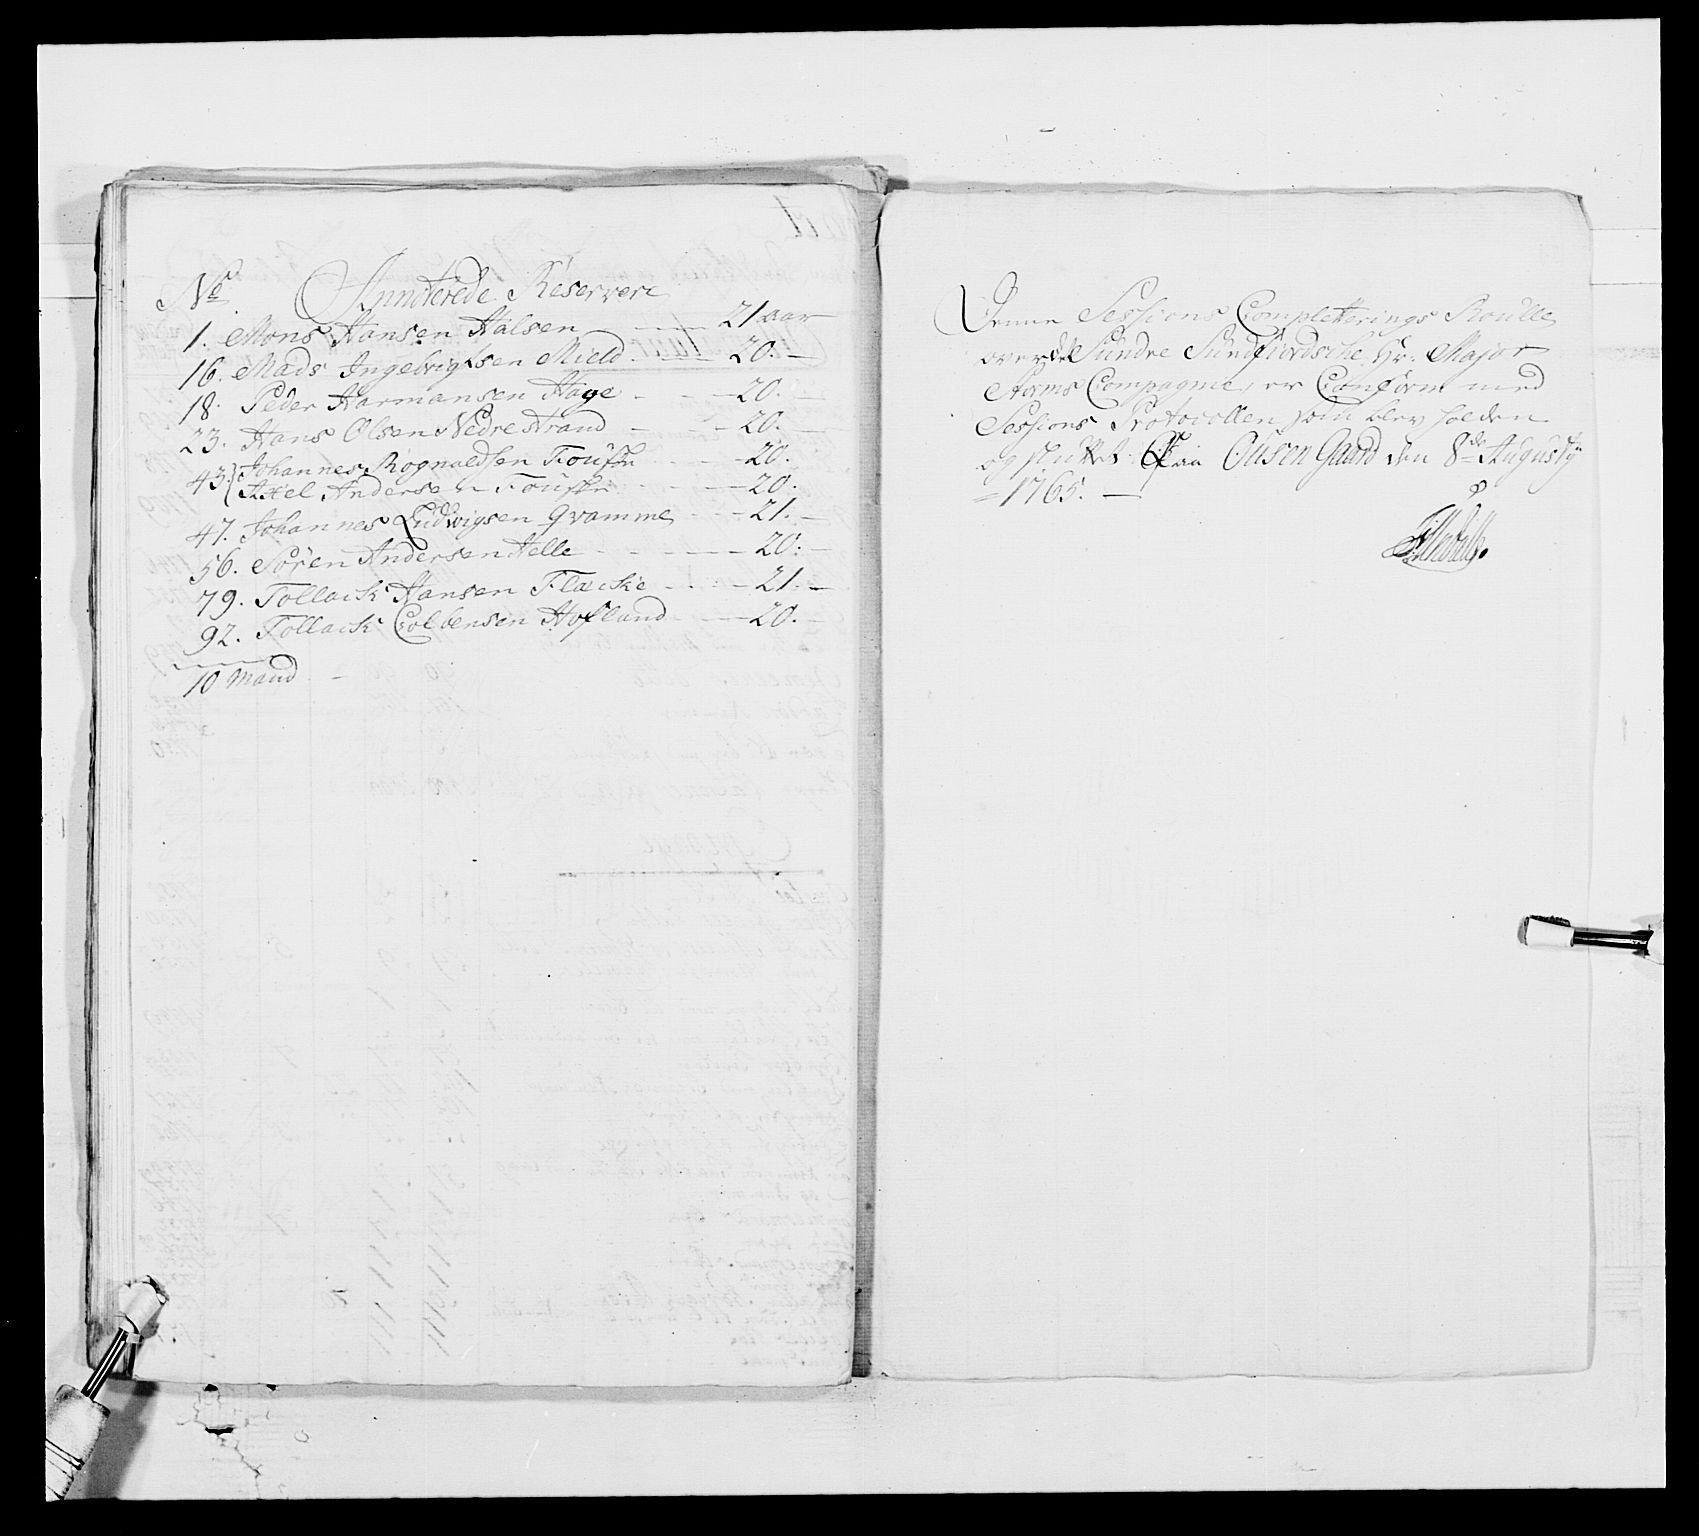 No Annoterede Reservere
1. Mons Hansen Halsen 21 aar
16. Mads Ingebrigtsen Mield 20.
18. Peder Harmansen Hage 20.
23. Hans Olsen Nedrestrand 20.
43. Johannes Rognaldsen Fouske 20.
Axel Andersen Fouske 20.
47. Johannes Ludwigsen Qvamme 21.
56. Sören Andersen Helle 20.
79. Tollack Hansen Flæcke 21.
92. Tollack Colbensen Hofland 20.
10 Mand
Denne Sessions Completterings Roulle
over det Sundre Sundfiordsche Hr. Major
Compagnie, er Conform med
Sessions Protocollen som blev holden
og sluttet paa Olusen Gaard den 8de Augusty
1765.